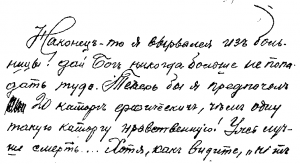 Наконецъ-то я вырвался изъ боль-
ницы! дай Богъ никогда больше не попа-
дать туда. Теперь бы я предпочелъ
20 каторгъ физическихъ, чѣмъ одну
такую каторгу нравственную! Ужъ луч-
ше смерть... Хотя, какъ видите, и въ